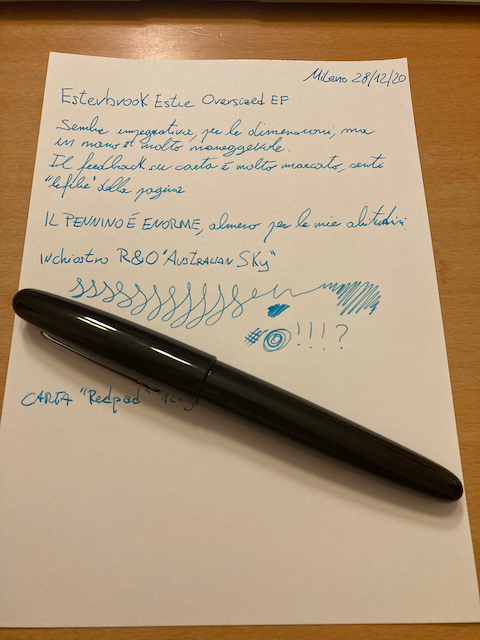 Milano 28/12/20
Esterbrook Estie Oversized EF
Sembra impegnativa, per le dimensioni, ma
in mano è molto maneggevole.
Il feedback su carta è molto marcato, senti
"le fibre" della pagina
IL PENNINO È ENORME, almeno per le mie abitudini.
inchiostro R&O "AUSTRALIAN SKY"
#@!!!?
CARTA "Redpad"